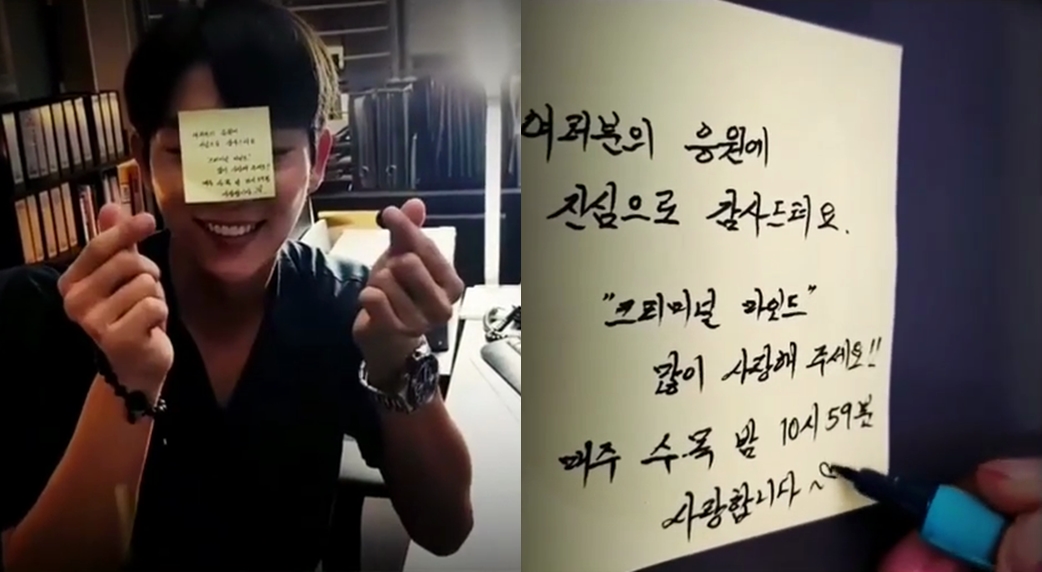 여러분의 응원에
진심으로 감사드려요.
"크리미널 마인드"
많이 사랑해 주세요!!
매주 수.목 밤 10시 59분
사랑합니다 ~♡